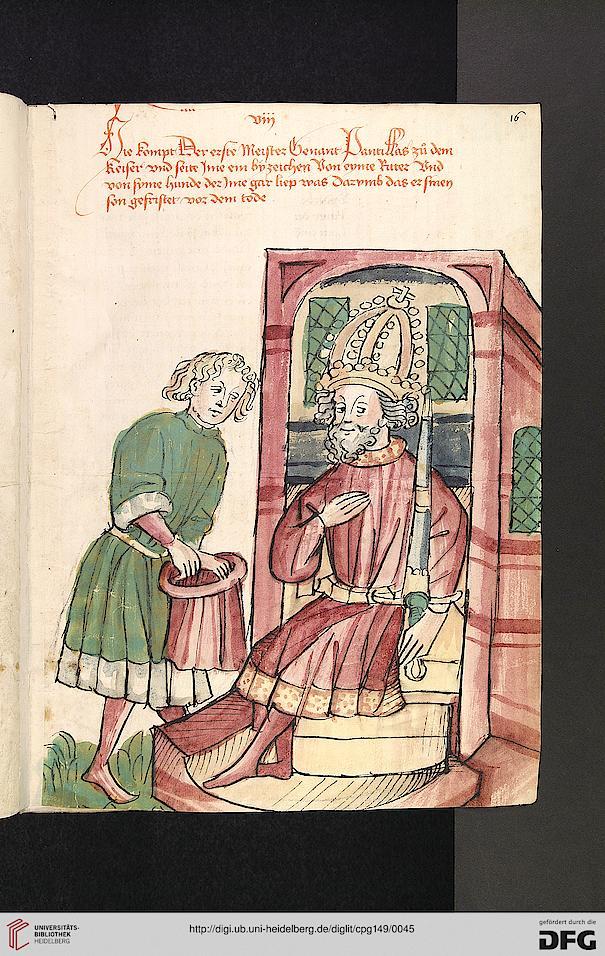 viij
16
Hie kompt Der erste Meister Genant Pantillas zü dem
keiser vnd seite Ime ein byzeichen Von eyme Ritter Vnd
von syme hunde der Ime gar liep was Darvmb das er sinen
son gefristet vor dem tode
UNIVERSITÄTS-
BIBLIOTHEK
HEIDELBERG
http://digi.ub.uni-heidelberg.de/diglit/cpg149/0045
gefördert durch die
DFG